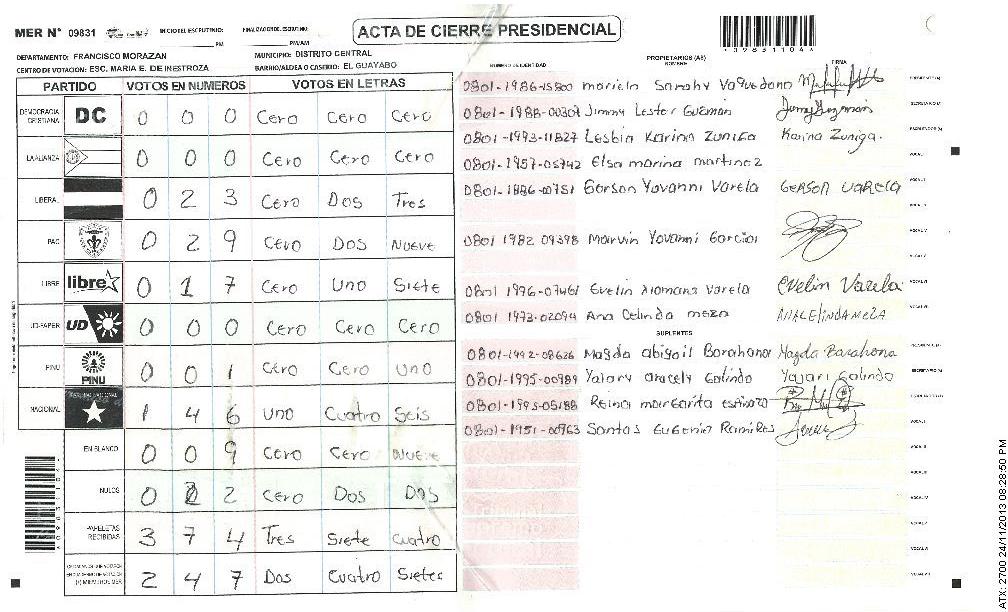 MER N° 09831
INICIO DEL ESCRUTINIO: PM
FINALIZACION DEL ESCRUTINIO: PM/AM
ACTA DE CIERRE PRESIDENCIAL
DEPARTAMENTO: FRANCISCO MORAZAN
MUNICIPIO: DISTRITO CENTRAL
CENTRO DE VOTACIÓN: ESC. MARIA E. DE INESTROZA
BARRIO/ALDEA O CASERIO: EL GUAYABO
PARTIDO VOTOS EN NUMEROS VOTOS EN LETRAS
DEMOCRACIA CRISTIANA DC 0 0 0 Cero Cero Cero
LA ALIANZA 0 0 0 Cero Cero Cero
LIBERAL 0 2 3 Cero Dos Tres
PAC 0 2 9 Cero Dos Nueve
LIBRE libre 0 1 7 Cero Uno Siete
UD-FAPER UD 0 0 0 Cero Cero Cero
PINU PINU 0 0 1 Cero Cero Uno
NACIONAL 1 4 6 Uno Cuatro Seis
EN BLANCO 0 0 9 Cero Cero Nueve
NULOS 0 2 2 Cero Dos Dos
PAPELETAS RECIBIDAS 3 7 4 Tres Siete Cuatro
2 4 7 Dos Cuatro Sietes
NUMERO DE IDENTIDAD PROPIETARIOS (AS) NOMBRE FIRMA
0801-1986-15800 mariela Sarahy Vaquedano PRESIDENTE (A)
0801-1988-00309 Jimmy Lester Guzmán Jimmy Guzmán SECRETARIO (A)
0801-1993-11827 Lesbin Karina Zuniga Karina Zuniga. ESCRUTADOR (A)
0801-1957-05742 Elsa marina martinez VOCAL I
0801-1986-00751 Gerson Yovanni Varela GERSON VARELA VOCAL II
0801 1982 09398 Marvin Yovanni Garcia VOCAL IV
VOCAL V
0801 1996-07461 Evelin Xiomara Varela Evelin Varela VOCAL VI
0801 1973-02094 Ana Celinda meza ANA CELINDA MEZA VOCAL VII
SUPLENTES
0801-1992-08626 Magda abigail Barahona Magda Barahona PRESIDENTE (A)
0801-1995-00989 Yajary aracely Galindo Yajari Galindo SECRETARIO (A)
0801-1995-05188 Reina margarita espinoza ESCRUTADOR (A)
0801-1951-00963 Santos Eugenio Ramires VOCAL I
VOCAL II
VOCAL III
VOCAL IV
VOCAL V
VOCAL VI
VOCAL VII
ATX: 2700 24/11/2013 08:28:50 PM